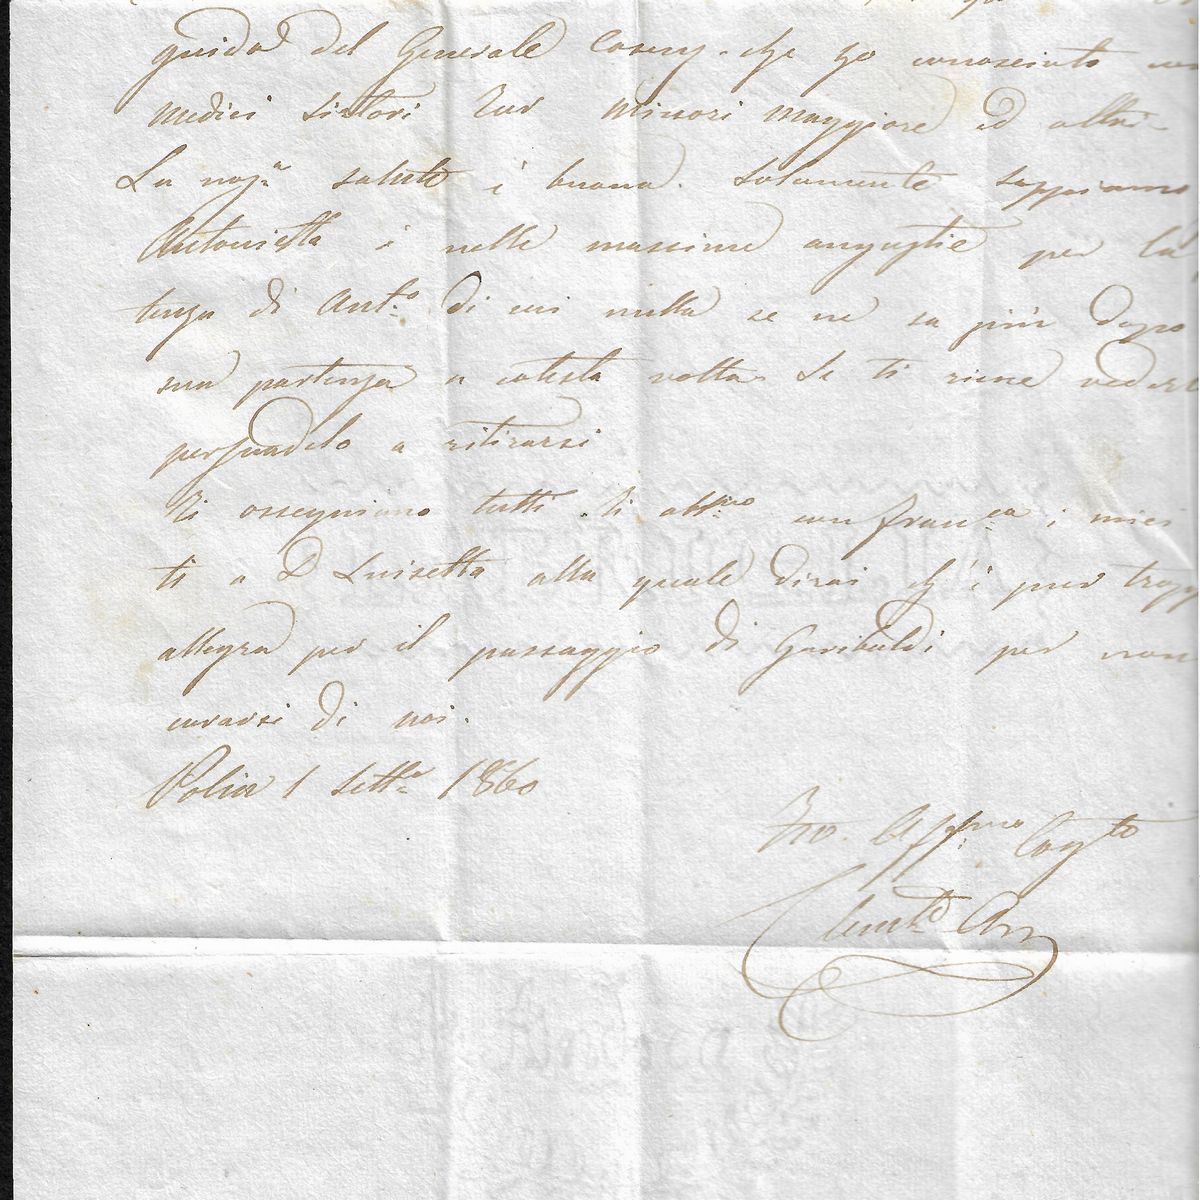 guida del Generale Cosenz che ho conosciuto con
Medici Sirtori Missori Maggiore ed altri
La nos.a salute è buona. Solamente sappiamo
Antonietta è nelle massime angustie per la
tenza di Ant.o di cui nulla se ne sa più dopo
sua partenza a cotesta volta. Se ti viene vederl
persuadelo a ritirarsi
Ti ossequiano tutti con i miei
ti a D Luisella alla quale dirai ch'è pur tropp
allegra per il passaggio di Garibaldi per non
curarsi di noi.
Polia 1 Sett.e 1860
Aff.mo